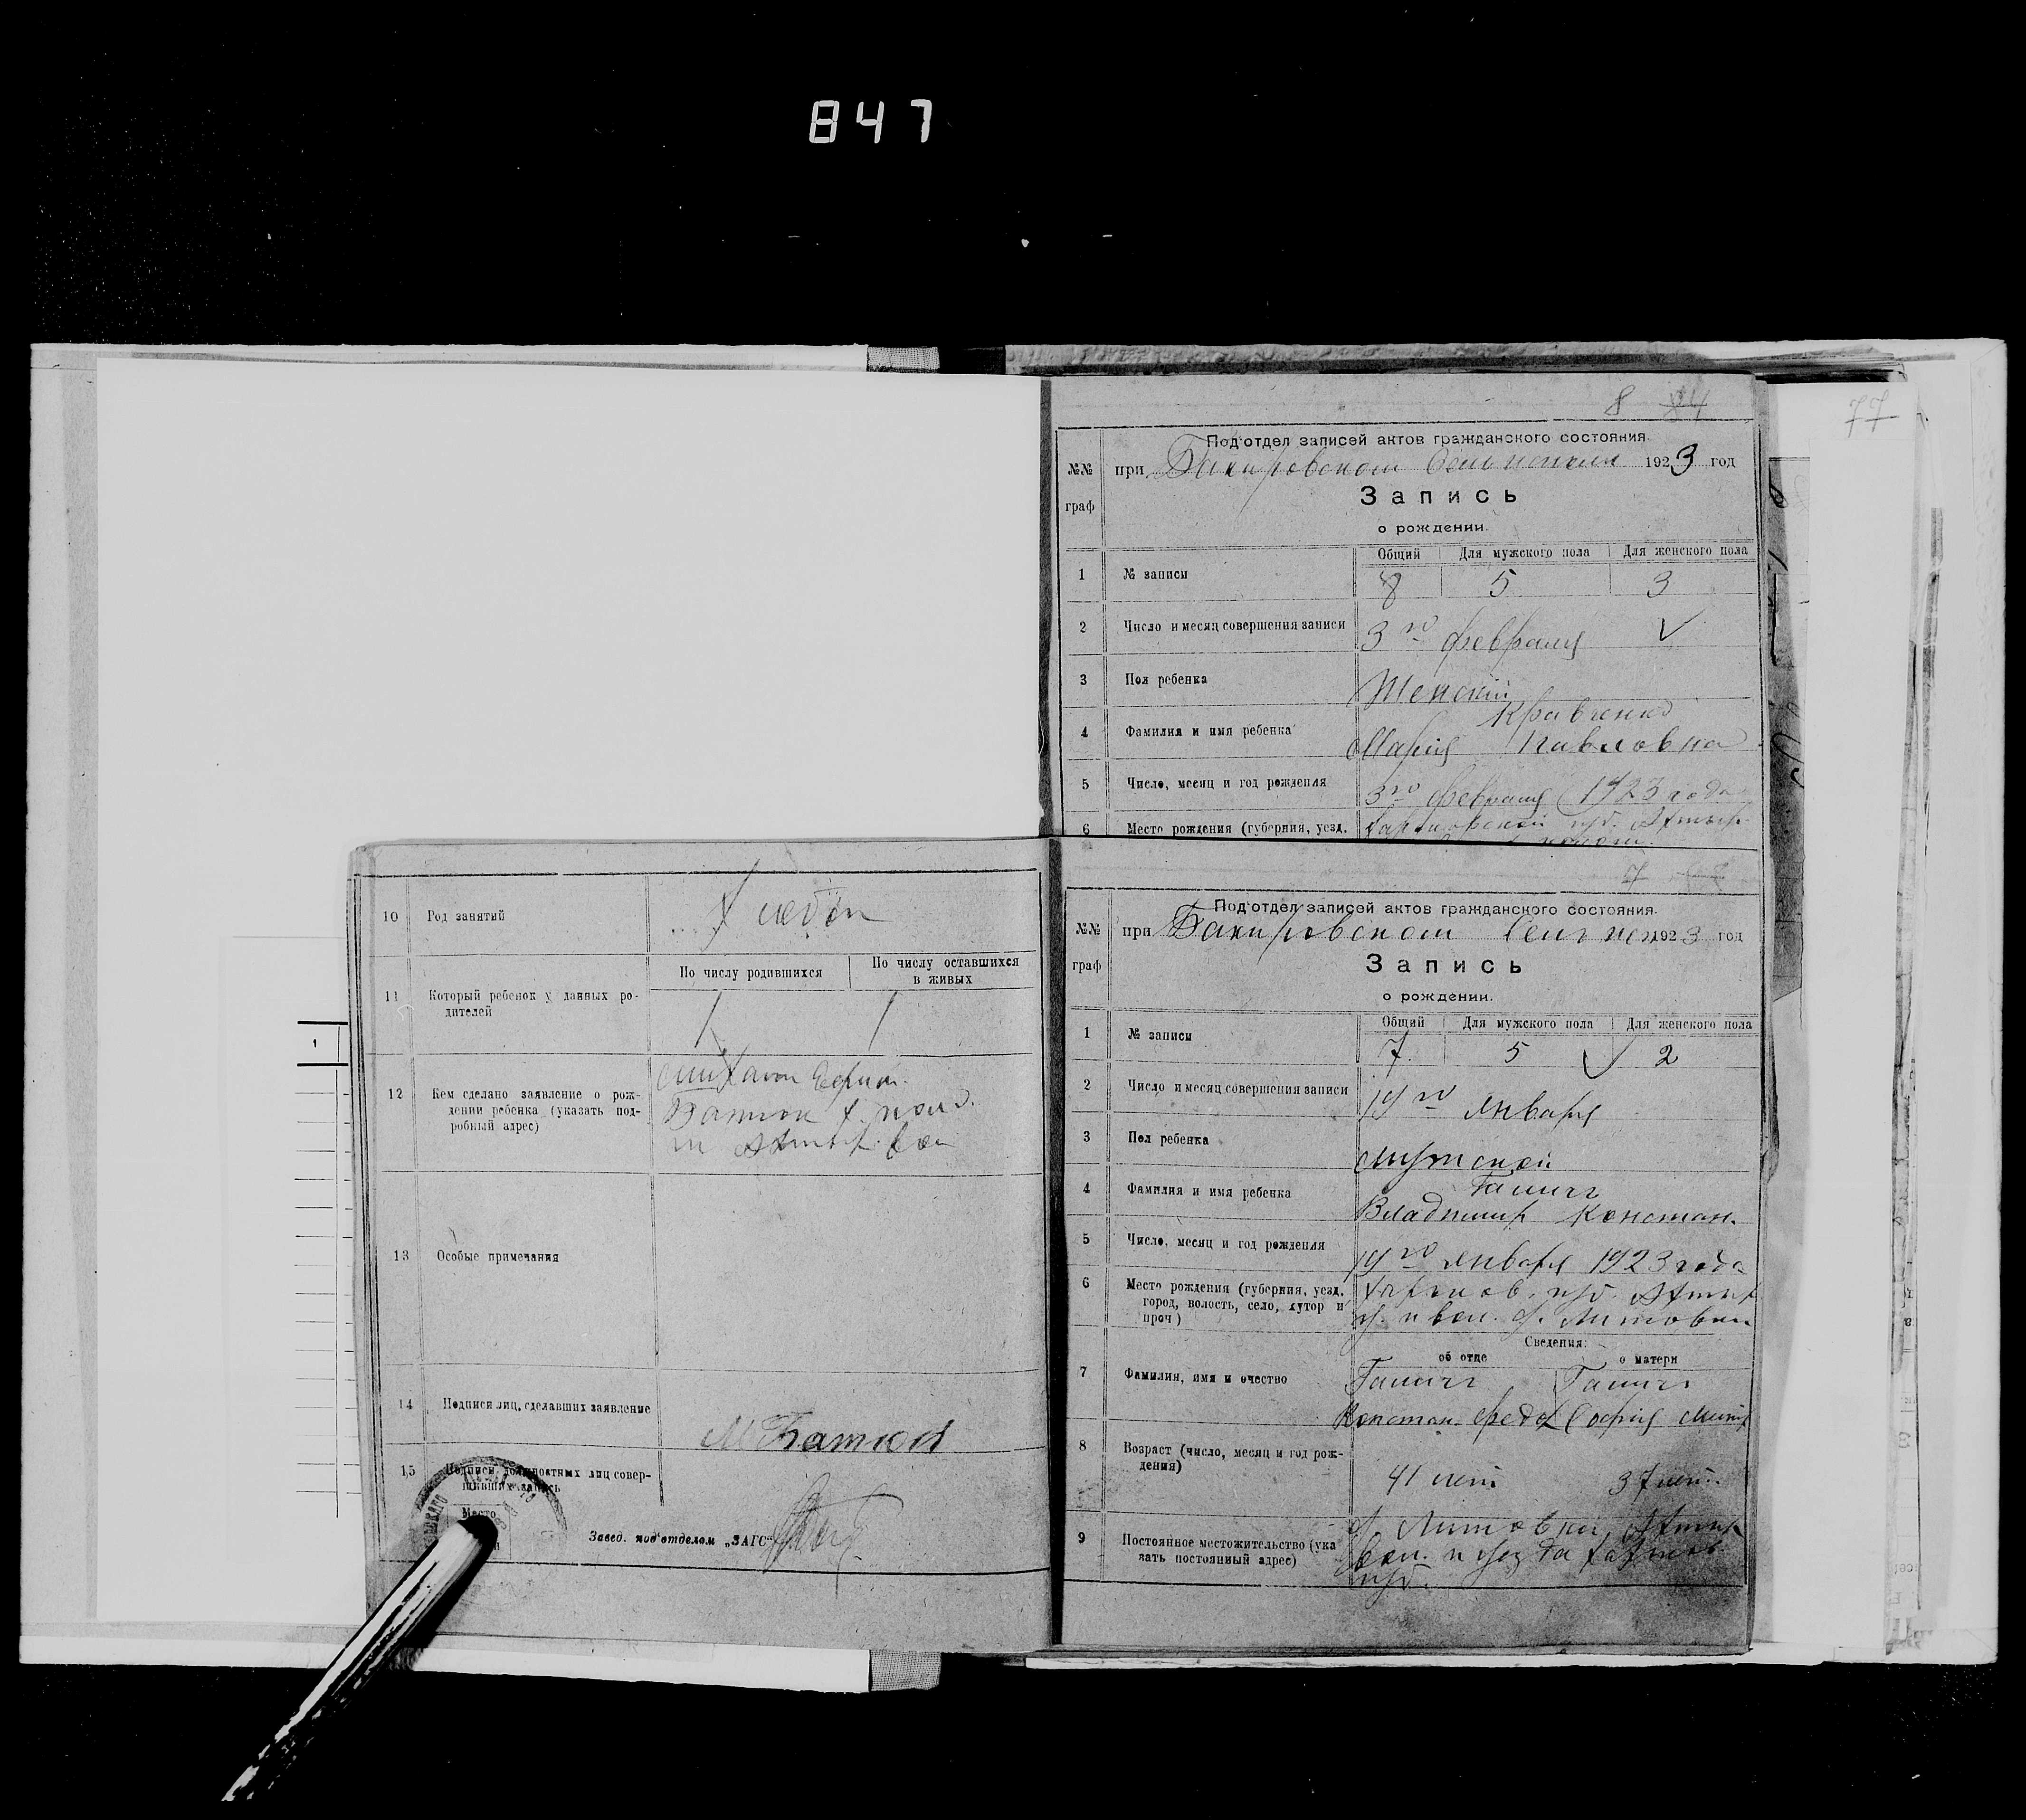 847
77
8 84
Под'отдел записей актов гражданского состояния.
№№ граф
при Бакировском 1923 год
Запись
о рождении.
Общий Для мужского пола Для женского пола
1 № записи 8 5 3
2 Число и месяц совершения записи 3го февраля
3 Пол ребенка Женский
4 Фамилия и имя ребенка Кравченко
Мария Павловна
5 Число, месяц и год рождения 3го февраля 1923 года
6 Место рождения (губерния, уезд, Харьковской губ. Ахтыр.
10 Род занятий Хлебоп
По числу родившихся По числу оставшихся
в живых
11 Который ребенок у данных ро-
дителей 1 1
12 Кем сделано заявление о рож-
дении ребенка (указать под-
робный адрес)
Михаил Ефим.
Ахтыр. вол
13 Особые примечания
14 Подписи лиц, сделавших заявление
М Батюк
15 Подписи должностных лиц совер-
шивших запись
Место
Завед. под'отделом „ЗАГС"
7
Под'отдел записей актов гражданского состояния.
№№ граф
при Бакировском 1923 год
Запись
о рождении.
Общий Для мужского пола Для женского пола
1 № записи 7 5 2
2 Число и месяц совершения записи 19го января
3 Пол ребенка Мужской
4 Фамилия и имя ребенка
Владимир Констан.
5 Число, месяц и год рождения 19го января 1923 года
6 Место рождения (губерния, уезд,
город, волость, село, хутор и
проч)
Харьков. губ. Ахтыр
у. и вол. х. Литовки
Сведения:
об отце о матери
7 Фамилия, имя и очество
Констан. Федо София Митр
8 Возраст (число, месяц и год рож-
дения) 41 лет 37 лет.
9 Постоянное местожительство (ука
зать постоянный адрес)
х. Литовки, Ахтыр
вол. и уезда Харьков
губ.